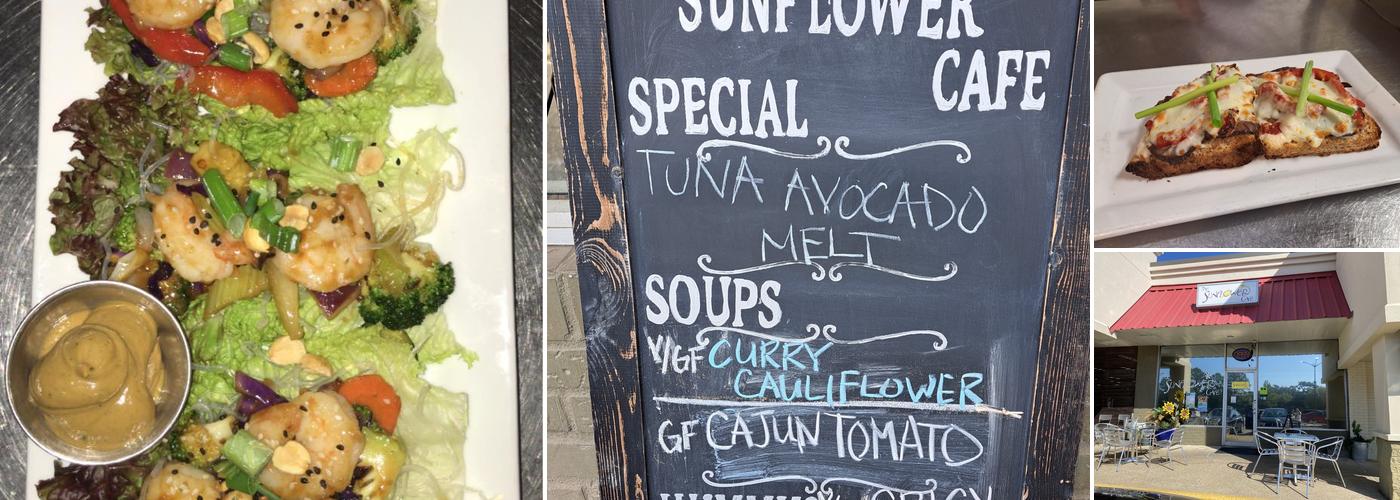 SUNFLOWER
CAFE
SPECIAL
TUNA AVOCADO
MELT
SOUPS
V/GF CURRY
CAULIFLOWER
GF CAJUN TOMATO
The
SUNFLOWER
Cafe
SUNFLOWER